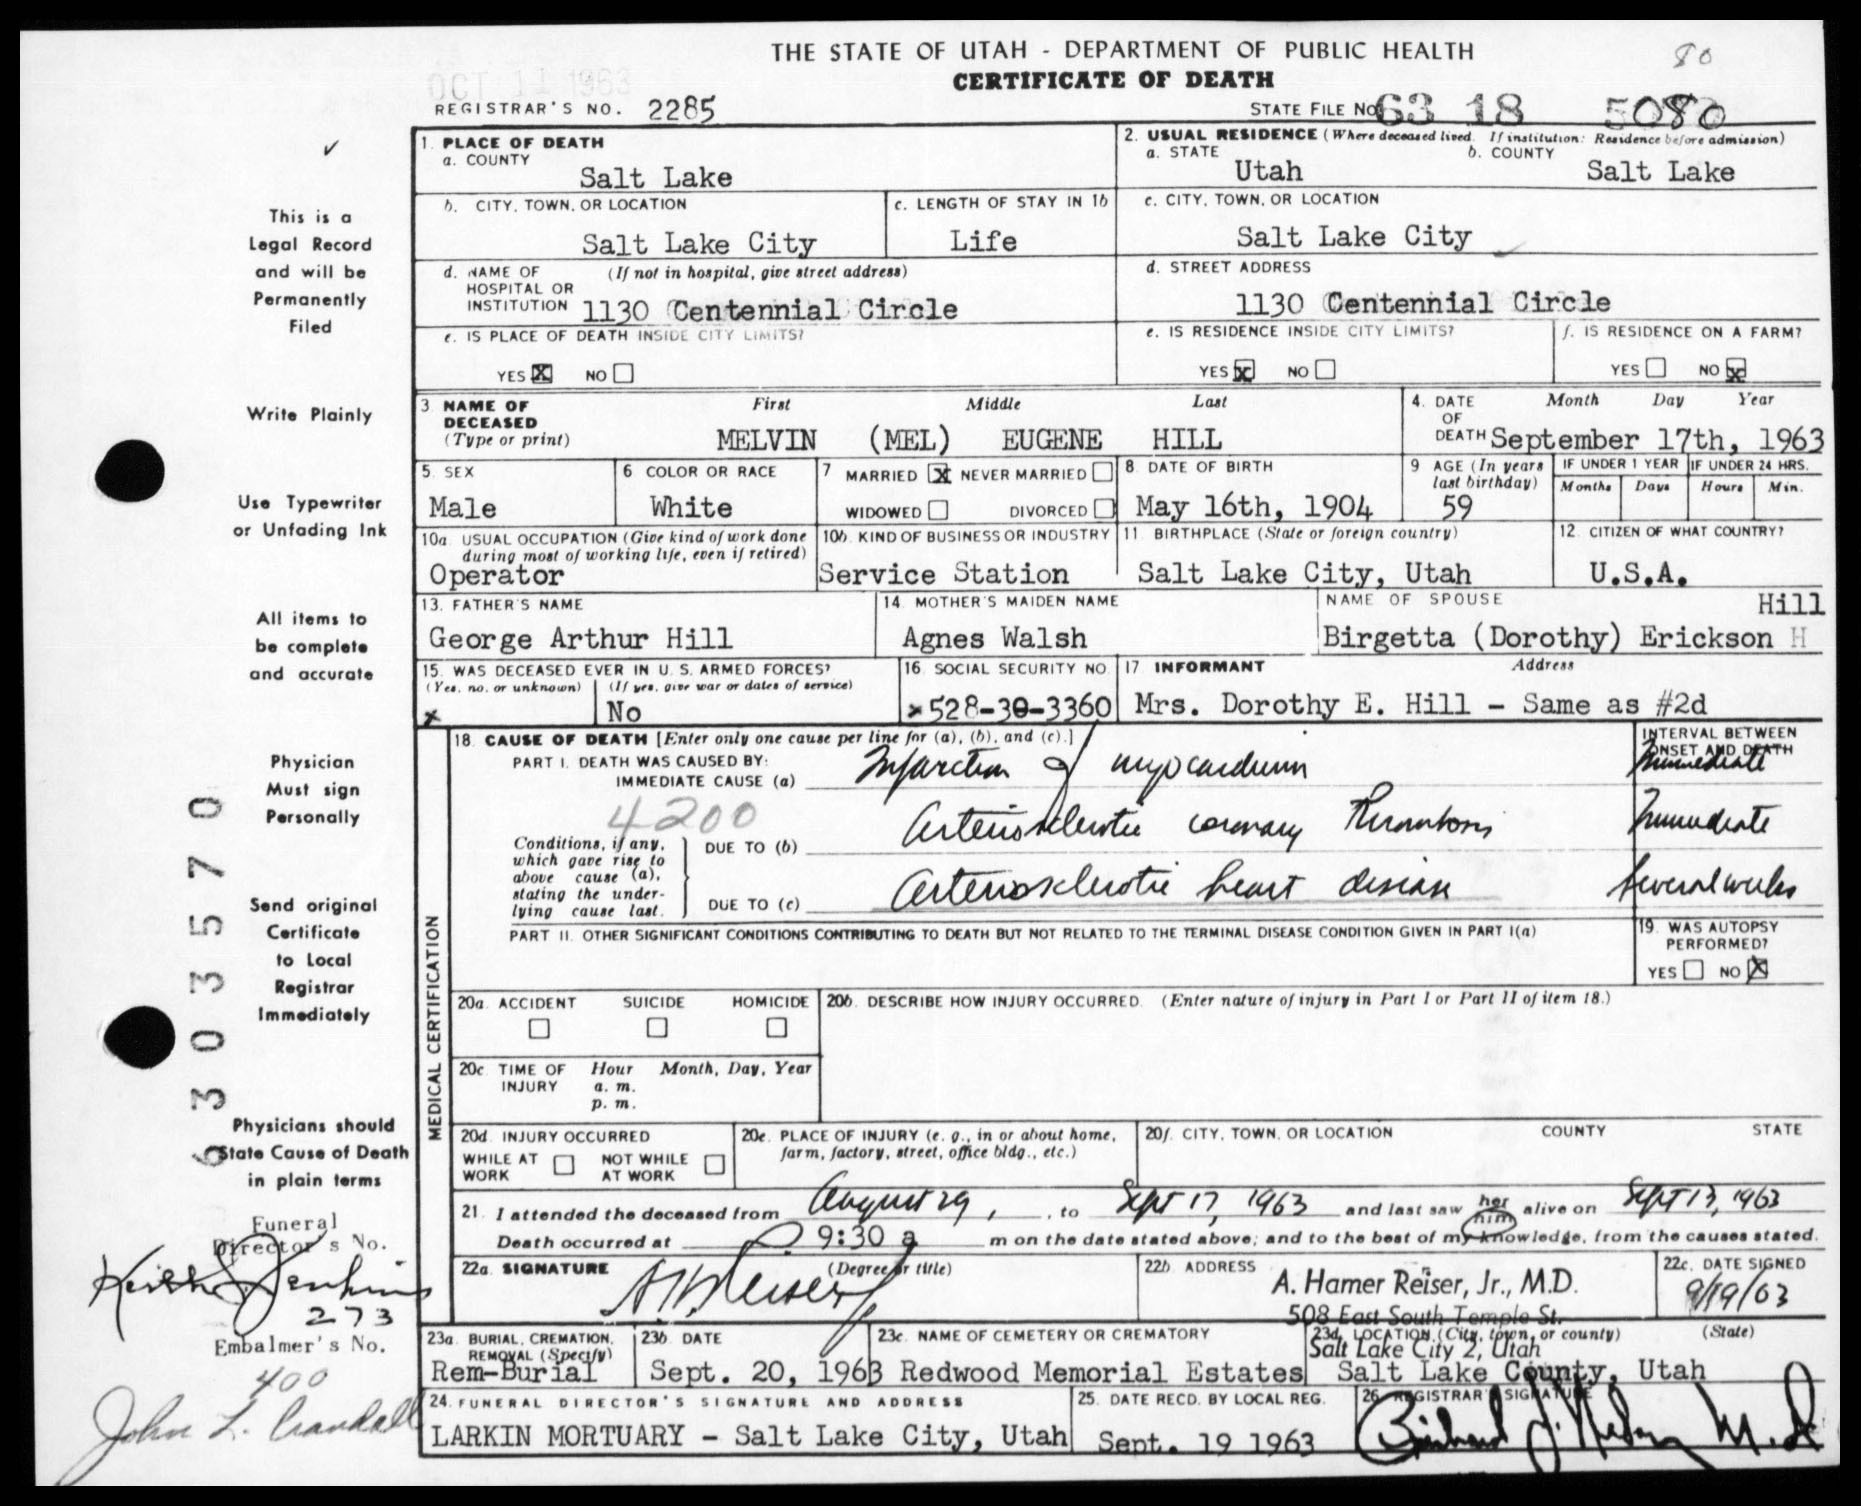 THE STATE OF UTAH - DEPARTMENT OF PUBLIC HEALTH
80
CERTIFICATE OF DEATH
OCT 11 1963
REGISTRAR'S NO. 2285
STATE FILE NO. 63 18 5080
This is a
Legal Record
and will be
Permanently
Filed
Write Plainly
Use Typewriter
or Unfading Ink
All items to
be complete
and accurate
Physician
Must sign
Personally
Send original
Certificate
to Local
Registrar
Immediately
Physicians should
State Cause of Death
in plain terms
6303570
Funeral
Director's No.
Keith J. Jenkins
273
Embalmer's No.
400
John L. Crandall
1. PLACE OF DEATH
a. COUNTY
Salt Lake
2. USUAL RESIDENCE (Where deceased lived. If institution: Residence before admission)
a. STATE
Utah
b. COUNTY
Salt Lake
b. CITY, TOWN, OR LOCATION
Salt Lake City
c. LENGTH OF STAY IN 1b
Life
c. CITY, TOWN, OR LOCATION
Salt Lake City
d. NAME OF (If not in hospital, give street address)
HOSPITAL OR
INSTITUTION 1130 Centennial Circle
d. STREET ADDRESS
1130 Centennial Circle
e. IS PLACE OF DEATH INSIDE CITY LIMITS?
YES X NO
e. IS RESIDENCE INSIDE CITY LIMITS?
YES X NO
f. IS RESIDENCE ON A FARM?
YES NO X
3. NAME OF DECEASED (Type or print)
First Middle Last
MELVIN (MEL) EUGENE HILL
4. DATE OF DEATH
Month Day Year
September 17th, 1963
5. SEX
Male
6 COLOR OR RACE
White
7 MARRIED X NEVER MARRIED
WIDOWED DIVORCED
8 DATE OF BIRTH
May 16th, 1904
9 AGE (In years last birthday)
59
IF UNDER 1 YEAR IF UNDER 24 HRS.
Months Days Hours Min.
10a. USUAL OCCUPATION (Give kind of work done during most of working life, even if retired)
Operator
10b. KIND OF BUSINESS OR INDUSTRY
Service Station
11 BIRTHPLACE (State or foreign country)
Salt Lake City, Utah
12. CITIZEN OF WHAT COUNTRY?
U.S.A.
13. FATHER'S NAME
George Arthur Hill
14. MOTHER'S MAIDEN NAME
Agnes Walsh
NAME OF SPOUSE
Hill
Birgetta (Dorothy) Erickson H
15. WAS DECEASED EVER IN U. S. ARMED FORCES?
(Yes, no, or unknown) (If yes, give war or dates of service)
x No
16. SOCIAL SECURITY NO.
528-30-3360
17 INFORMANT Address
Mrs. Dorothy E. Hill - Same as #2d
MEDICAL CERTIFICATION
18. CAUSE OF DEATH [Enter only one cause per line for (a), (b), and (c).]
INTERVAL BETWEEN
ONSET AND DEATH
PART I. DEATH WAS CAUSED BY:
IMMEDIATE CAUSE (a) Infarction of myocardium Immediate
4200
Conditions, if any, which gave rise to above cause (a), stating the underlying cause last.
DUE TO (b) Arteriosclerotic coronary Thrombosis Immediate
DUE TO (c) Arteriosclerotic heart disease Several weeks
PART II. OTHER SIGNIFICANT CONDITIONS CONTRIBUTING TO DEATH BUT NOT RELATED TO THE TERMINAL DISEASE CONDITION GIVEN IN PART I(a)
19. WAS AUTOPSY PERFORMED?
YES NO X
20a. ACCIDENT SUICIDE HOMICIDE
20b. DESCRIBE HOW INJURY OCCURRED. (Enter nature of injury in Part I or Part II of item 18.)
20c TIME OF INJURY Hour Month, Day, Year
a. m.
p. m.
20d. INJURY OCCURRED
WHILE AT WORK NOT WHILE AT WORK
20e. PLACE OF INJURY (e. g., in or about home, farm, factory, street, office bldg., etc.)
20f. CITY, TOWN, OR LOCATION COUNTY STATE
21. I attended the deceased from August 29, , to Sept 17, 1963 and last saw her him alive on Sept 13, 1963
Death occurred at 9:30 a m on the date stated above; and to the best of my knowledge, from the causes stated.
22a. SIGNATURE (Degree or title)
A H Reiser Jr
22b ADDRESS
A. Hamer Reiser, Jr., M.D.
508 East South Temple St.
Salt Lake City 2, Utah
22c. DATE SIGNED
9/19/63
23a. BURIAL, CREMATION, REMOVAL (Specify)
Rem-Burial
23b DATE
Sept. 20, 1963
23c. NAME OF CEMETERY OR CREMATORY
Redwood Memorial Estates
23d. LOCATION (City, town, or county) (State)
Salt Lake County, Utah
24. FUNERAL DIRECTOR'S SIGNATURE AND ADDRESS
LARKIN MORTUARY - Salt Lake City, Utah
25. DATE RECD. BY LOCAL REG.
Sept. 19 1963
26. REGISTRAR'S SIGNATURE
M.D.